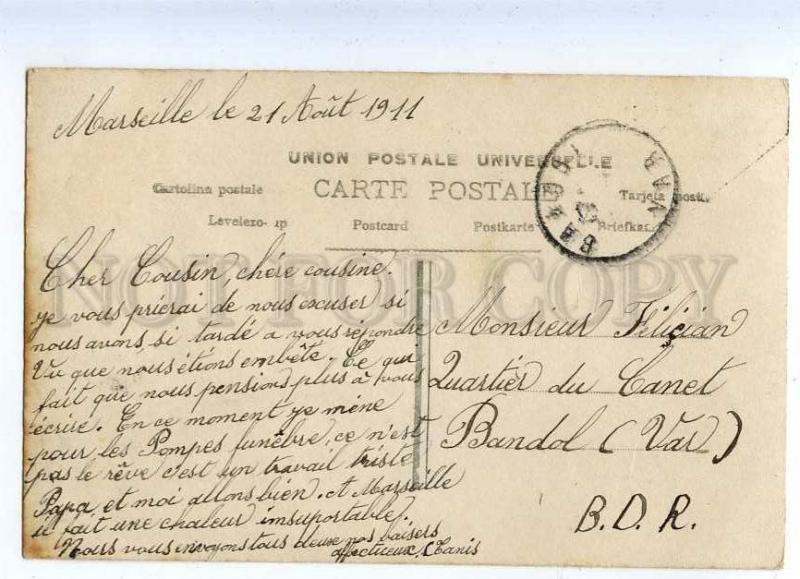 Marseille le 21 Août 1911
UNION POSTALE UNIVERSELLE
CARTE POSTALE
Cartolina postale
Tarjeta post.
Levelezo- ıp
Postcard
Postkarte
Briefka
BANDOL
VAR
NOT FOR COPY
Cher Cousin, chère cousine.
je vous prierai de nous excuser si
nous avons si tardé a vous répondre
Vu que nous étions embêté. Ce qui
fait que nous pensions plus à vous
écrire. En ce moment je mène
pour les Pompes funèbre, ce n'est
pas le rêve c'est un travail triste
Papa et moi allons bien. A Marseille
il fait une chaleur insuportable.
Nous vous envoyons tous deux nos baisers
affectueux,
Monsieur Féliçian
Quartier du Canet
Bandol (Var)
B.D.R.